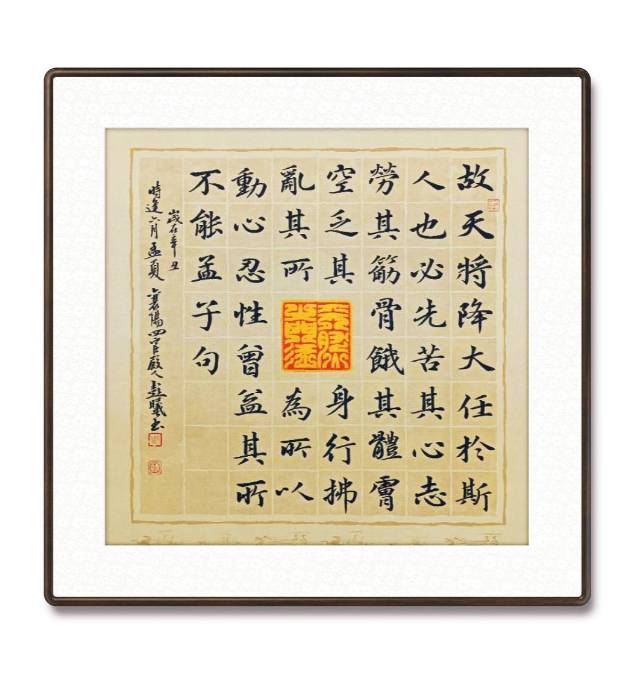 故天將降大任於斯
人也必先苦其心志
勞其筋骨餓其體膚
空乏其身行拂
亂其所為所以
動心忍性曾益其所
不能孟子句
歲在辛丑
時逢六月孟夏 襄陽四官殿人曦書